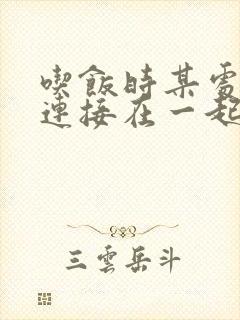 喫飯時某處
連接在一起
三雲岳斗